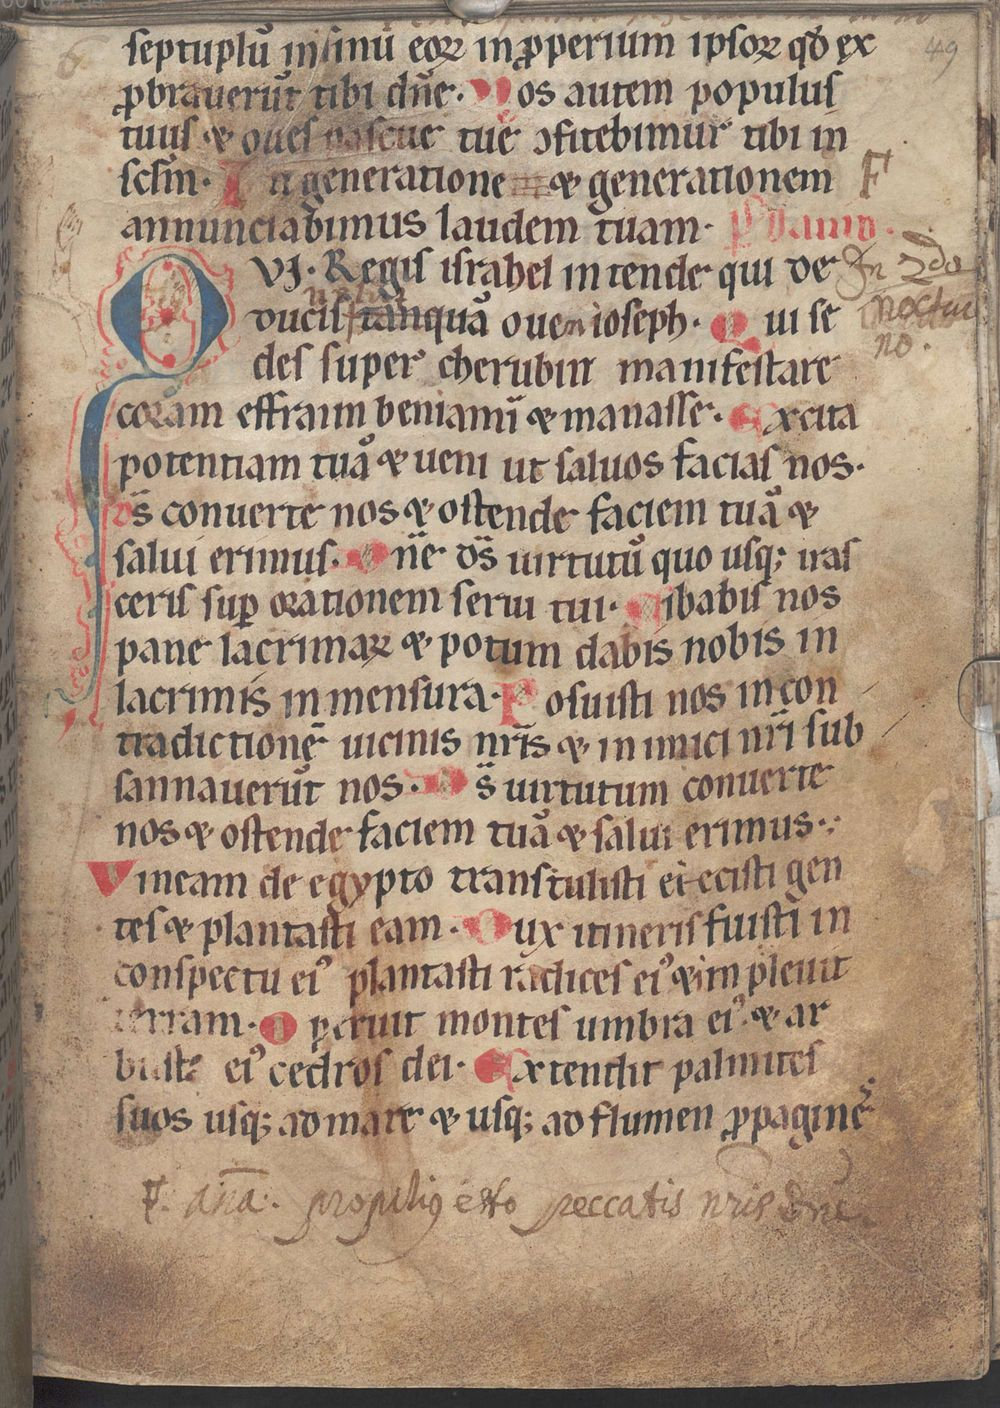 septuplū in sinū eoꝝ in ꝓperium ipsoꝝ qđ ex
ꝓbrauerūt tibi dn̄e. Nos autem populus
tuus ⁊ oues pascue tue ↄfitebimur tibi in
sc̄lm. In generatione ⁊ generationem F
annunciabimus laudem tuam. ps̄ Dauid.
QVI. Regis israhel intende qui de In 2do
ducis tanquā ouem ioseph. Qui se noctur
des super cherubin manifestare no.
coram effraim beniamī ⁊ manasse. Excita
potentiam tuā ⁊ ueni ut saluos facias nos.
Ds̄ conuerte nos ⁊ ostende faciem tuā ⁊
salui erimus. Dn̄e ds̄ uirtutū quo usq; iras
ceris suꝑ orationem serui tui. Cibabis nos
pane lacrimaꝝ ⁊ potum dabis nobis in
lacrimis in mensura. Posuisti nos in con
tradictionē uicinis nr̄is ⁊ inimici nr̄i sub
sannauerūt nos. Ds̄ uirtutum conuerte
nos ⁊ ostende faciem tuā ⁊ salui erimus.
Vineam de egypto transtulisti eiecisti gen
tes ⁊ plantasti eam. Dux itineris fuisti in
conspectu eiꝰ plantasti radices eiꝰ ⁊ impleuit
terram. Operuit montes umbra eiꝰ. ⁊ ar
busta eiꝰ cedros dei. Extendit palmites
suos usq; ad mare ⁊ usq; ad flumen ꝓpaginē
F. Ana. propitiꝰ esto peccatis nr̄is Dn̄e.
49